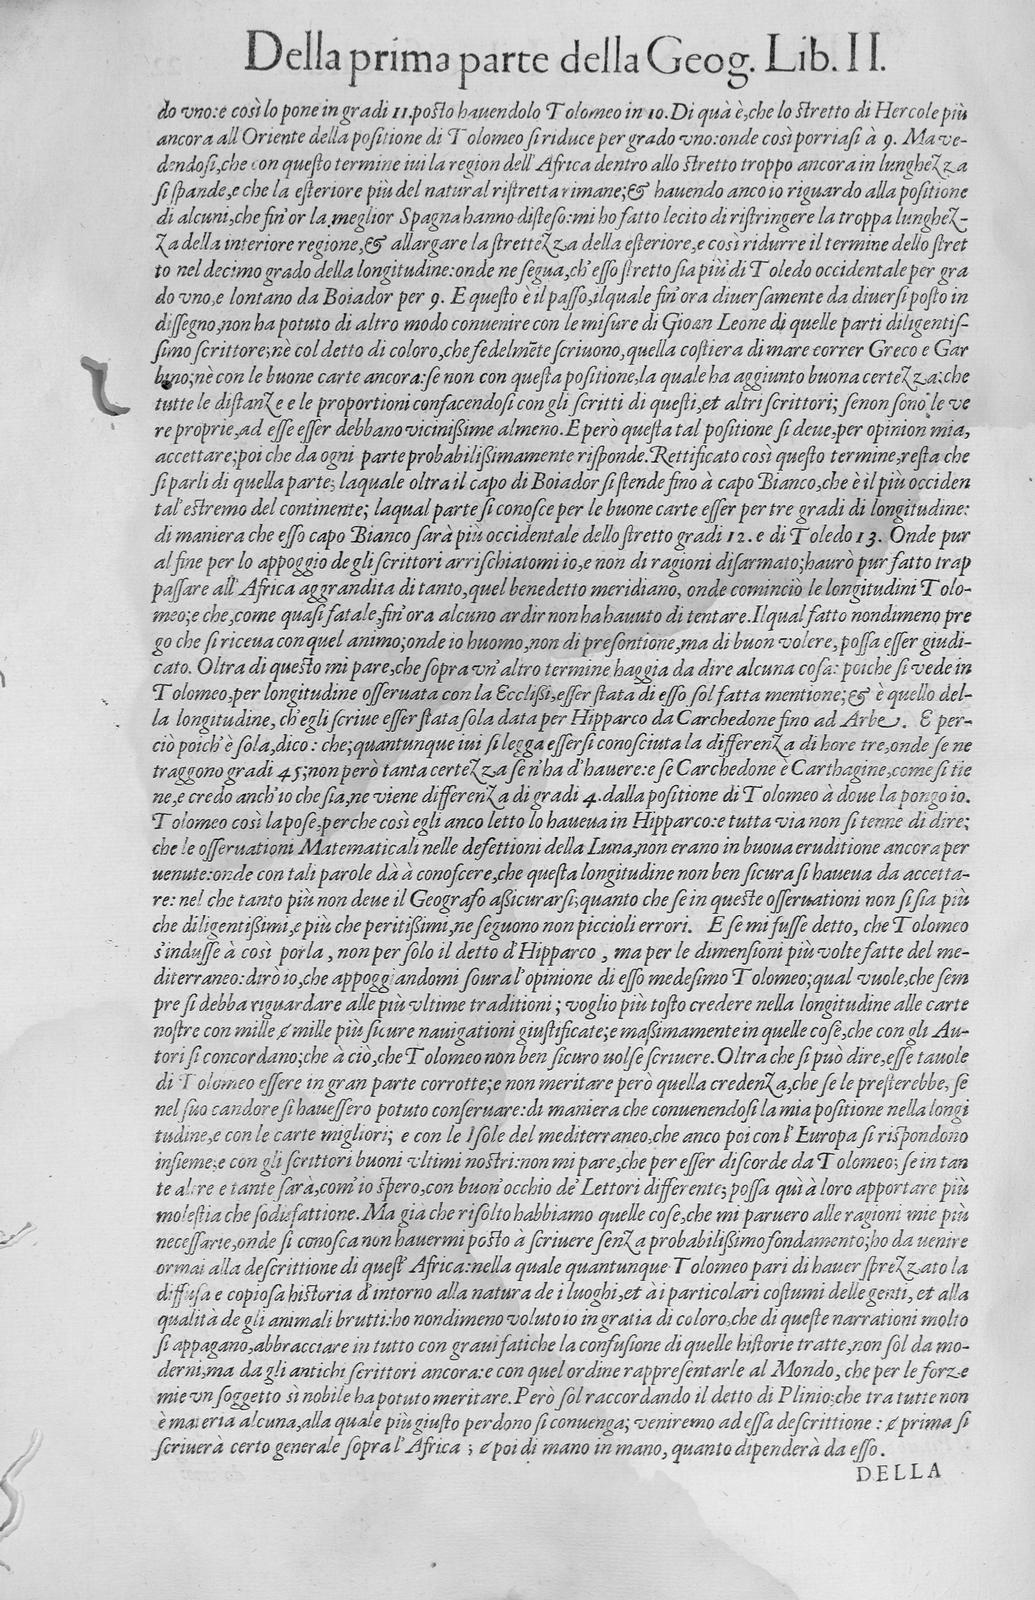 Della prima parte della Geog. Lib. II.
do vno: e così lo pone in gradi 11. posto hauendolo Tolomeo in 10. Di quà è, che lo stretto di Hercole più
ancora all Oriente della positione di Tolomeo si riduce per grado vno: onde così porriasi à 9. Ma ve-
dendosi, che con questo termine iui la region dell'Africa dentro allo stretto troppo ancora in lunghezza
si spande, e che la esteriore più del natural ristretta rimane; & hauendo anco io riguardo alla positione
di alcuni, che fin'or la meglior Spagna hanno disteso: mi ho fatto lecito di ristringere la troppa lunghez-
za della interiore regione, & allargare la strettezza della esteriore, e così ridurre il termine dello stret
to nel decimo grado della longitudine: onde ne segua, ch'esso stretto sia più di Toledo occidentale per gra
do vno, e lontano da Boiador per 9. E questo è il passo, il quale fin'ora diuersamente da diuersi posto in
dissegno, non ha potuto di altro modo conuenire con le misure di Gioan Leone di quelle parti diligentis-
simo scrittore; nè col detto di coloro, che fedelmēte scriuono, quella costiera di mare correr Greco e Gar
bino; nè con le buone carte ancora: se non con questa positione, la quale ha aggiunto buona certezza: che
tutte le distanze e le proportioni confacendosi con gli scritti di questi, et altri scrittori; se non sono le ve
re proprie, ad esse esser debbano vicinißime almeno. E però questa tal positione si deue, per opinion mia,
accettare; poi che da ogni parte probabilißimamente risponde. Rettificato così questo termine, resta che
si parli di quella parte, laquale oltra il capo di Boiador si stende fino à capo Bianco, che è il più occiden
tal'estremo del continente; laqual parte si conosce per le buone carte esser per tre gradi di longitudine:
di maniera che esso capo Bianco sarà più occidentale dello stretto gradi 12. e di Toledo 13. Onde pur
al fine per lo appoggio de gli scrittori arrischiatomi io, e non di ragioni disarmato; haurò pur fatto trap
passare all'Africa aggrandita di tanto, quel benedetto meridiano, onde cominciò le longitudini Tolo-
meo; e che, come quasi fatale, fin'ora alcuno ardir non ha hauuto di tentare. Il qual fatto nondimeno pre
go che si riceua con quel animo; onde io huomo, non di presontione, ma di buon volere, possa esser giudi-
cato. Oltra di questo mi pare, che sopra vn'altro termine haggia da dire alcuna cosa: poiche si vede in
Tolomeo, per longitudine osseruata con la Ecclißi, esser stata di esso sol fatta mentione; & è quello del-
la longitudine, ch'egli scriue esser stata sola data per Hipparco da Carchedone fino ad Arbe. E per-
ciò poich'è sola, dico: che; quantunque iui si legga essersi conosciuta la differenza di hore tre, onde se ne
traggono gradi 45; non però tanta certezza se n'ha d'hauere: e se Carchedone è Carthagine, come si tie
ne, e credo anch'io che sia, ne viene differenza di gradi 4. dalla positione di Tolomeo à doue la pongo io.
Tolomeo così la pose, perche così egli anco letto lo haueua in Hipparco: e tutta via non si tenne di dire;
che le osseruationi Matematicali nelle defettioni della Luna, non erano in buoua eruditione ancora per
uenute: onde con tali parole dà à conoscere, che questa longitudine non ben sicura si haueua da accetta-
re: nel che tanto più non deue il Geografo aßicurarsi; quanto che se in queste osseruationi non si sia più
che diligentißimi, e più che peritißimi, ne seguono non piccioli errori. E se mi fusse detto, che Tolomeo
s'indusse à così porla, non per solo il detto d'Hipparco, ma per le dimensioni più volte fatte del me-
diterraneo: dirò io, che appoggiandomi soura l'opinione di esso medesimo Tolomeo; qual vuole, che sem
pre si debba riguardare alle più vltime traditioni; voglio più tosto credere nella longitudine alle carte
nostre con mille & mille più sicure nauigationi giustificate; e maßimamente in quelle cose, che con gli Au-
tori si concordano; che à ciò, che Tolomeo non ben sicuro uolse scriuere. Oltra che si può dire, esse tauole
di Tolomeo essere in gran parte corrotte; e non meritare però quella credenza, che se le presterebbe, se
nel suo candore si hauessero potuto conseruare: di maniera che conuenendosi la mia positione nella longi
tudine, e con le carte migliori; e con le Isole del mediterraneo, che anco poi con l'Europa si rispondono
insieme; e con gli scrittori buoni vltimi nostri: non mi pare, che per esser discorde da Tolomeo; se in tan
te altre e tante sarà, com'io spero, con buon'occhio de' Lettori differente; possa quì à loro apportare più
molestia che sodisfattione. Ma già che risolto habbiamo quelle cose, che mi paruero alle ragioni mie più
necessarie, onde si conosca non hauermi posto à scriuere senza probabilißimo fondamento; ho da uenire
ormai alla descrittione di quest'Africa: nella quale quantunque Tolomeo pari di hauer sprezzato la
diffusa e copiosa historia d'intorno alla natura de i luoghi, et à i particolari costumi delle genti, et alla
qualità de gli animali brutti: ho nondimeno voluto io in gratia di coloro, che di queste narrationi molto
si appagano, abbracciare in tutto con graui fatiche la confusione di quelle historie tratte, non sol da mo-
derni, ma da gli antichi scrittori ancora: e con quel ordine rappresentarle al Mondo, che per le forze
mie vn soggetto sì nobile ha potuto meritare. Però sol raccordando il detto di Plinio; che tra tutte non
è materia alcuna, alla quale più giusto perdono si conuenga; veniremo ad essa descrittione: & prima si
scriuerà certo generale sopra l'Africa; & poi di mano in mano, quanto dipenderà da esso.
DELLA